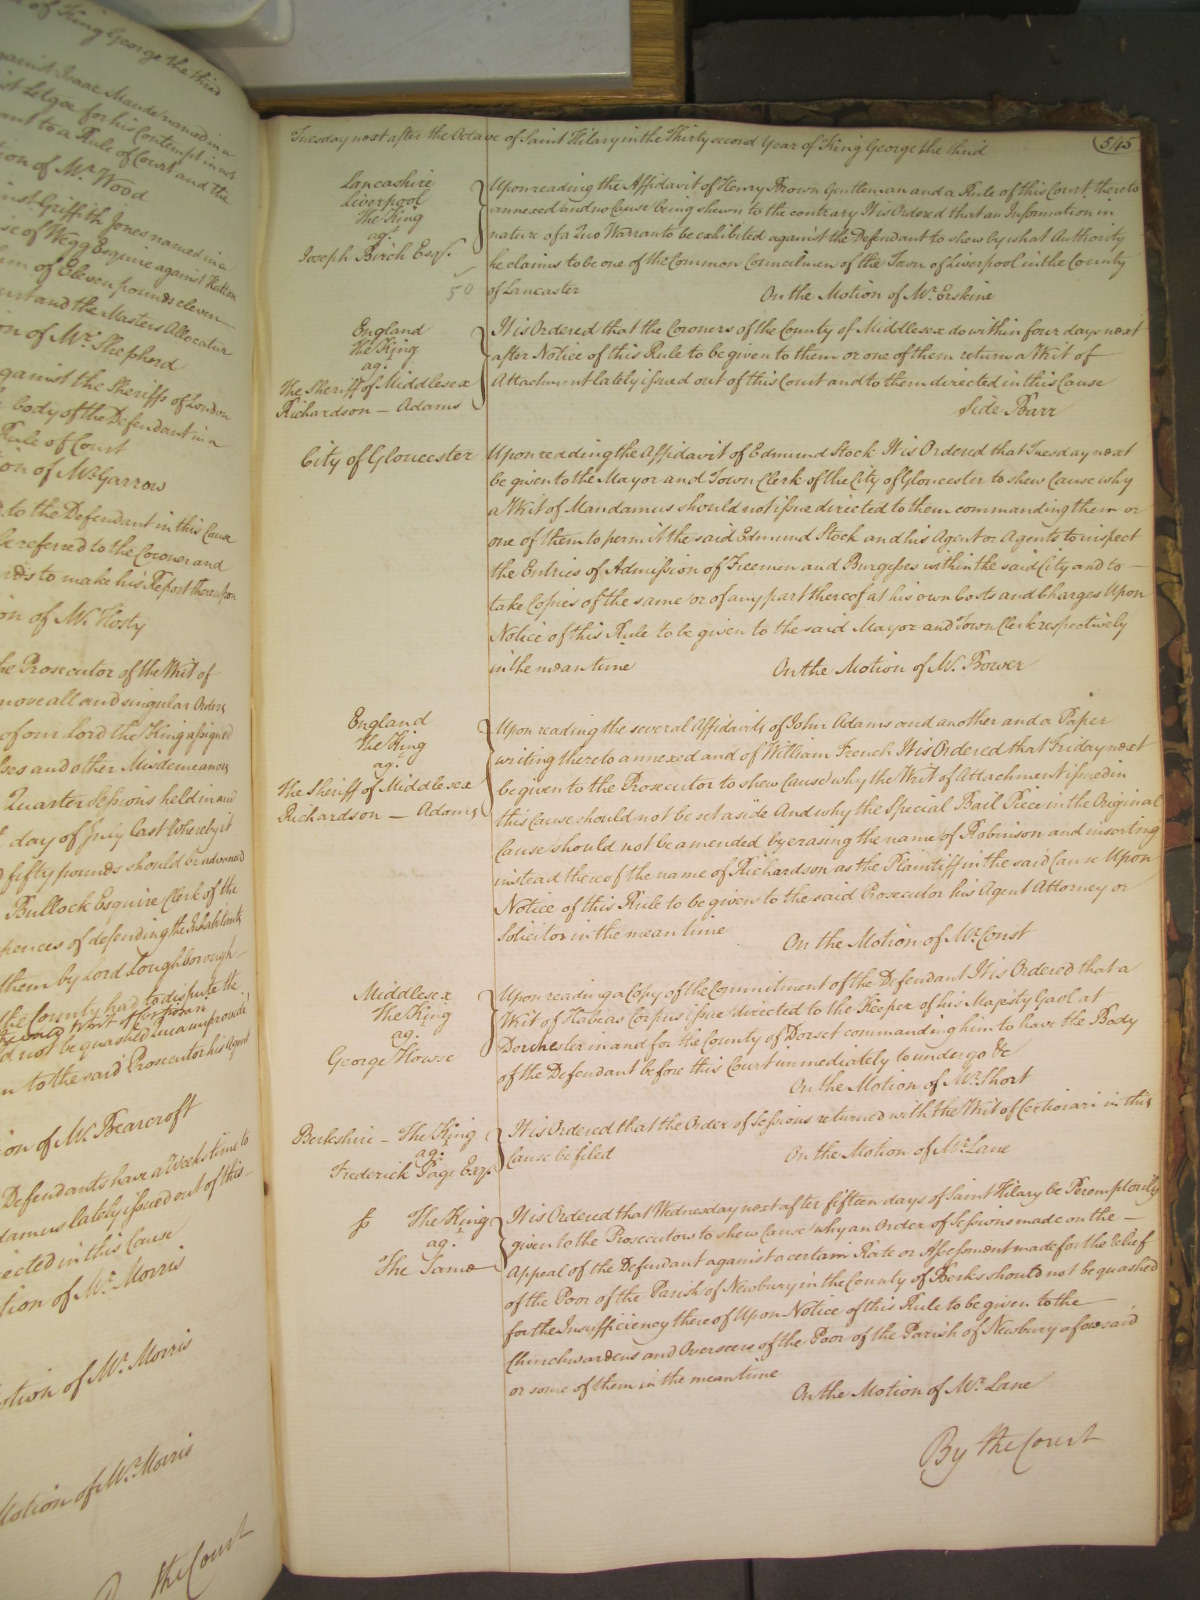 of King George the third
against Isaac Maude named in a
for his Contempt in not
ant to a Rule of Court and the
tion of Mr. Wood
inst Griffith Jones named in a
se of Wegg Esquire against
sum of Eleven pounds eleven
urt and the Masters Allocatur
on of Mr. Shepherd
against the Sheriffs of London
body of the Defendant in a
Rule of Court
ion of Mr. Garrow
to the Defendant in this Cause
be referred to the Coroner and
nds to make his Report thereupon
on of Mr. Hosty
he Prosecutor of the Writ of
move all and singular Orders
of our Lord the King assigned
ses and other Misdemeanors
Quarter Sessions held in and
day of July last Whereby it
d fifty pounds should be advanced
Bullock Esquire Clerk of the
pences of defending the Inhabitants
them by Lord Loughborough
the County had to dispute the
d not be quashed
n to the said Prosecutor his Agent
ion of Mr. Bearcroft
Defendants have a Weeks time to
damus lately issued out of this
rected in this Cause
tion of Mr. Morris
otion of Mr. Morris
Motion of Mr. Morris
By the Court
Tuesday next after the Octave of Saint Hilary in the Thirty second Year of King George the third
545
Lancashire
Liverpool
The King
agt.
Joseph Birch Esqr.
50
Upon reading the Affidavit of Henry Brown Gentleman and a Rule of this Court thereto
annexed and no Cause being shewn to the contrary It is Ordered that an Information in
nature of a Quo Warranto be exhibited against the Defendant to shew by what Authority
he claims to be one of the Common Councilmen of the Town of Liverpool in the County
of Lancaster On the Motion of Mr. Erskine
England
The King
ag.
The Sheriff of Middlesex
Richardson — Adams
It is Ordered that the Coroners of the County of Middlesex do within four days next
after Notice of this Rule to be given to them or one of them return a Writ of
Attachment lately issued out of this Court and to them directed in this Cause
Side Barr
City of Gloucester
Upon reading the Affidavit of Edmund Stock It is Ordered that Tuesday next
be given to the Mayor and Town Clerk of the City of Gloucester to shew Cause why
a Writ of Mandamus should not issue directed to them commanding them or
one of them to permit the said Edmund Stock and his Agent or Agents to inspect
the Entries of Admission of Freemen and Burgesses within the said City and to —
take Copies of the same or of any part thereof at his own Costs and Charges Upon
Notice of this Rule to be given to the said Mayor and Town Clerk respectively
in the mean time On the Motion of Mr. Bower
England
The King
ag.
The Sheriff of Middlesex
Richardson — Adams
Upon reading the several Affidavits of John Adams and another and a Paper
writing thereto annexed and of William French It is Ordered that Friday next
be given to the Prosecutor to shew Cause why the Writ of Attachment issued in
this Cause should not be set aside And why the Special Bail Piece in the Original
Cause should not be amended by erasing the name of Robinson and inserting
instead thereof the name of Richardson as the Plaintiff in the said Cause Upon
Notice of this Rule to be given to the said Prosecutor his Agent Attorney or
Solicitor in the mean time On the Motion of Mr. Const
Middlesex
The King
ag.
George Howse
Upon reading a Copy of the Commitment of the Defendant It is Ordered that a
Writ of Habeas Corpus issue directed to the Keeper of his Majesty Gaol at
Dorchester in and for the County of Dorset commanding him to have the Body
of the Defendant before this Court immediately to undergo &c
On the Motion of Mr. Short
Berkshire — The King
ag.
Frederick Page Esqr.
It is Ordered that the Order of Sessions returned with the Writ of Certiorari in this
Cause be filed On the Motion of Mr. Lane
The King
ag.
The Same
It is Ordered that Wednesday next after fifteen days of Saint Hilary be Peremptorily
given to the Prosecutors to shew Cause why an Order of Sessions made on the —
Appeal of the Defendant against a certain Rate or Assessment made for the relief
of the Poor of the Parish of Newbury in the County of Berks should not be quashed
for the Insufficiency thereof Upon Notice of this Rule to be given to the
Churchwardens and Overseers of the Poor of the Parish of Newbury aforesaid
or some of them in the mean time On the Motion of Mr. Lane
By the Court